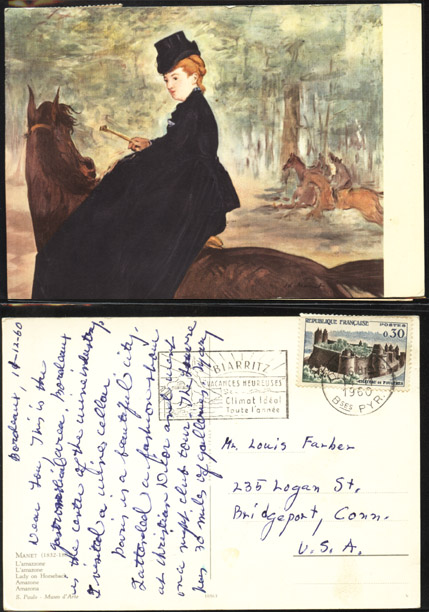 Bordeaux, 9-12-60
Dear Lou This is the
area. Bordeaux
is the center of the wine industry
I visited a wine cellar
Paris is a beautiful city.
I attended a fashion show
at Christian Dior and went
on a night club tour. The Louvre
has 30 miles of galleries.
MANET (1832-1883)
L'amazone
L'amazone
Lady on Horseback
Amazone
Amazona
S. Paulo - Museo d'Arte
BIARRITZ
VACANCES HEUREUSES
Climat Idéal
Toute l'année
1960
Bses PYR.
REPUBLIQUE FRANÇAISE
POSTES
0,30
CHATEAU DE FOUGERES
Mr. Louis Farber
235 Logan St.
Bridgeport, Conn.
U.S.A.